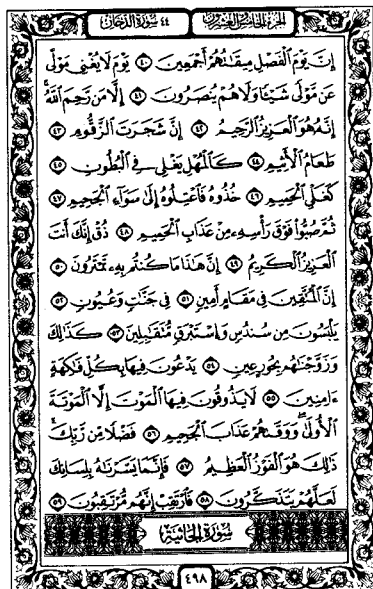 الجزء الخامس والعشرون
٤٤ سورة الدخان
إِنَّ يَوْمَ ٱلْفَصْلِ مِيقَـٰتُهُمْ أَجْمَعِينَ ٤٠ يَوْمَ لَا يُغْنِى مَوْلًى
عَن مَّوْلًى شَيْـًٔا وَلَا هُمْ يُنصَرُونَ ٤١ إِلَّا مَن رَّحِمَ ٱللَّهُ ۚ
إِنَّهُۥ هُوَ ٱلْعَزِيزُ ٱلرَّحِيمُ ٤٢ إِنَّ شَجَرَتَ ٱلزَّقُّومِ ٤٣
طَعَامُ ٱلْأَثِيمِ ٤٤ كَٱلْمُهْلِ يَغْلِى فِى ٱلْبُطُونِ ٤٥
كَغَلْىِ ٱلْحَمِيمِ ٤٦ خُذُوهُ فَٱعْتِلُوهُ إِلَىٰ سَوَآءِ ٱلْجَحِيمِ ٤٧
ثُمَّ صُبُّوا۟ فَوْقَ رَأْسِهِۦ مِنْ عَذَابِ ٱلْحَمِيمِ ٤٨ ذُقْ إِنَّكَ أَنتَ
ٱلْعَزِيزُ ٱلْكَرِيمُ ٤٩ إِنَّ هَـٰذَا مَا كُنتُم بِهِۦ تَمْتَرُونَ ٥٠
إِنَّ ٱلْمُتَّقِينَ فِى مَقَامٍ أَمِينٍ ٥١ فِى جَنَّـٰتٍ وَعُيُونٍ ٥٢
يَلْبَسُونَ مِن سُندُسٍ وَإِسْتَبْرَقٍ مُّتَقَـٰبِلِينَ ٥٣ كَذَٰلِكَ
وَزَوَّجْنَـٰهُم بِحُورٍ عِينٍ ٥٤ يَدْعُونَ فِيهَا بِكُلِّ فَـٰكِهَةٍ
ءَامِنِينَ ٥٥ لَا يَذُوقُونَ فِيهَا ٱلْمَوْتَ إِلَّا ٱلْمَوْتَةَ
ٱلْأُولَىٰ ۖ وَوَقَىٰهُمْ عَذَابَ ٱلْجَحِيمِ ٥٦ فَضْلًا مِّن رَّبِّكَ ۚ
ذَٰلِكَ هُوَ ٱلْفَوْزُ ٱلْعَظِيمُ ٥٧ فَإِنَّمَا يَسَّرْنَـٰهُ بِلِسَانِكَ
لَعَلَّهُمْ يَتَذَكَّرُونَ ٥٨ فَٱرْتَقِبْ إِنَّهُم مُّرْتَقِبُونَ ٥٩
سُورَةُ الجَاثِيَةِ
٤٩٨